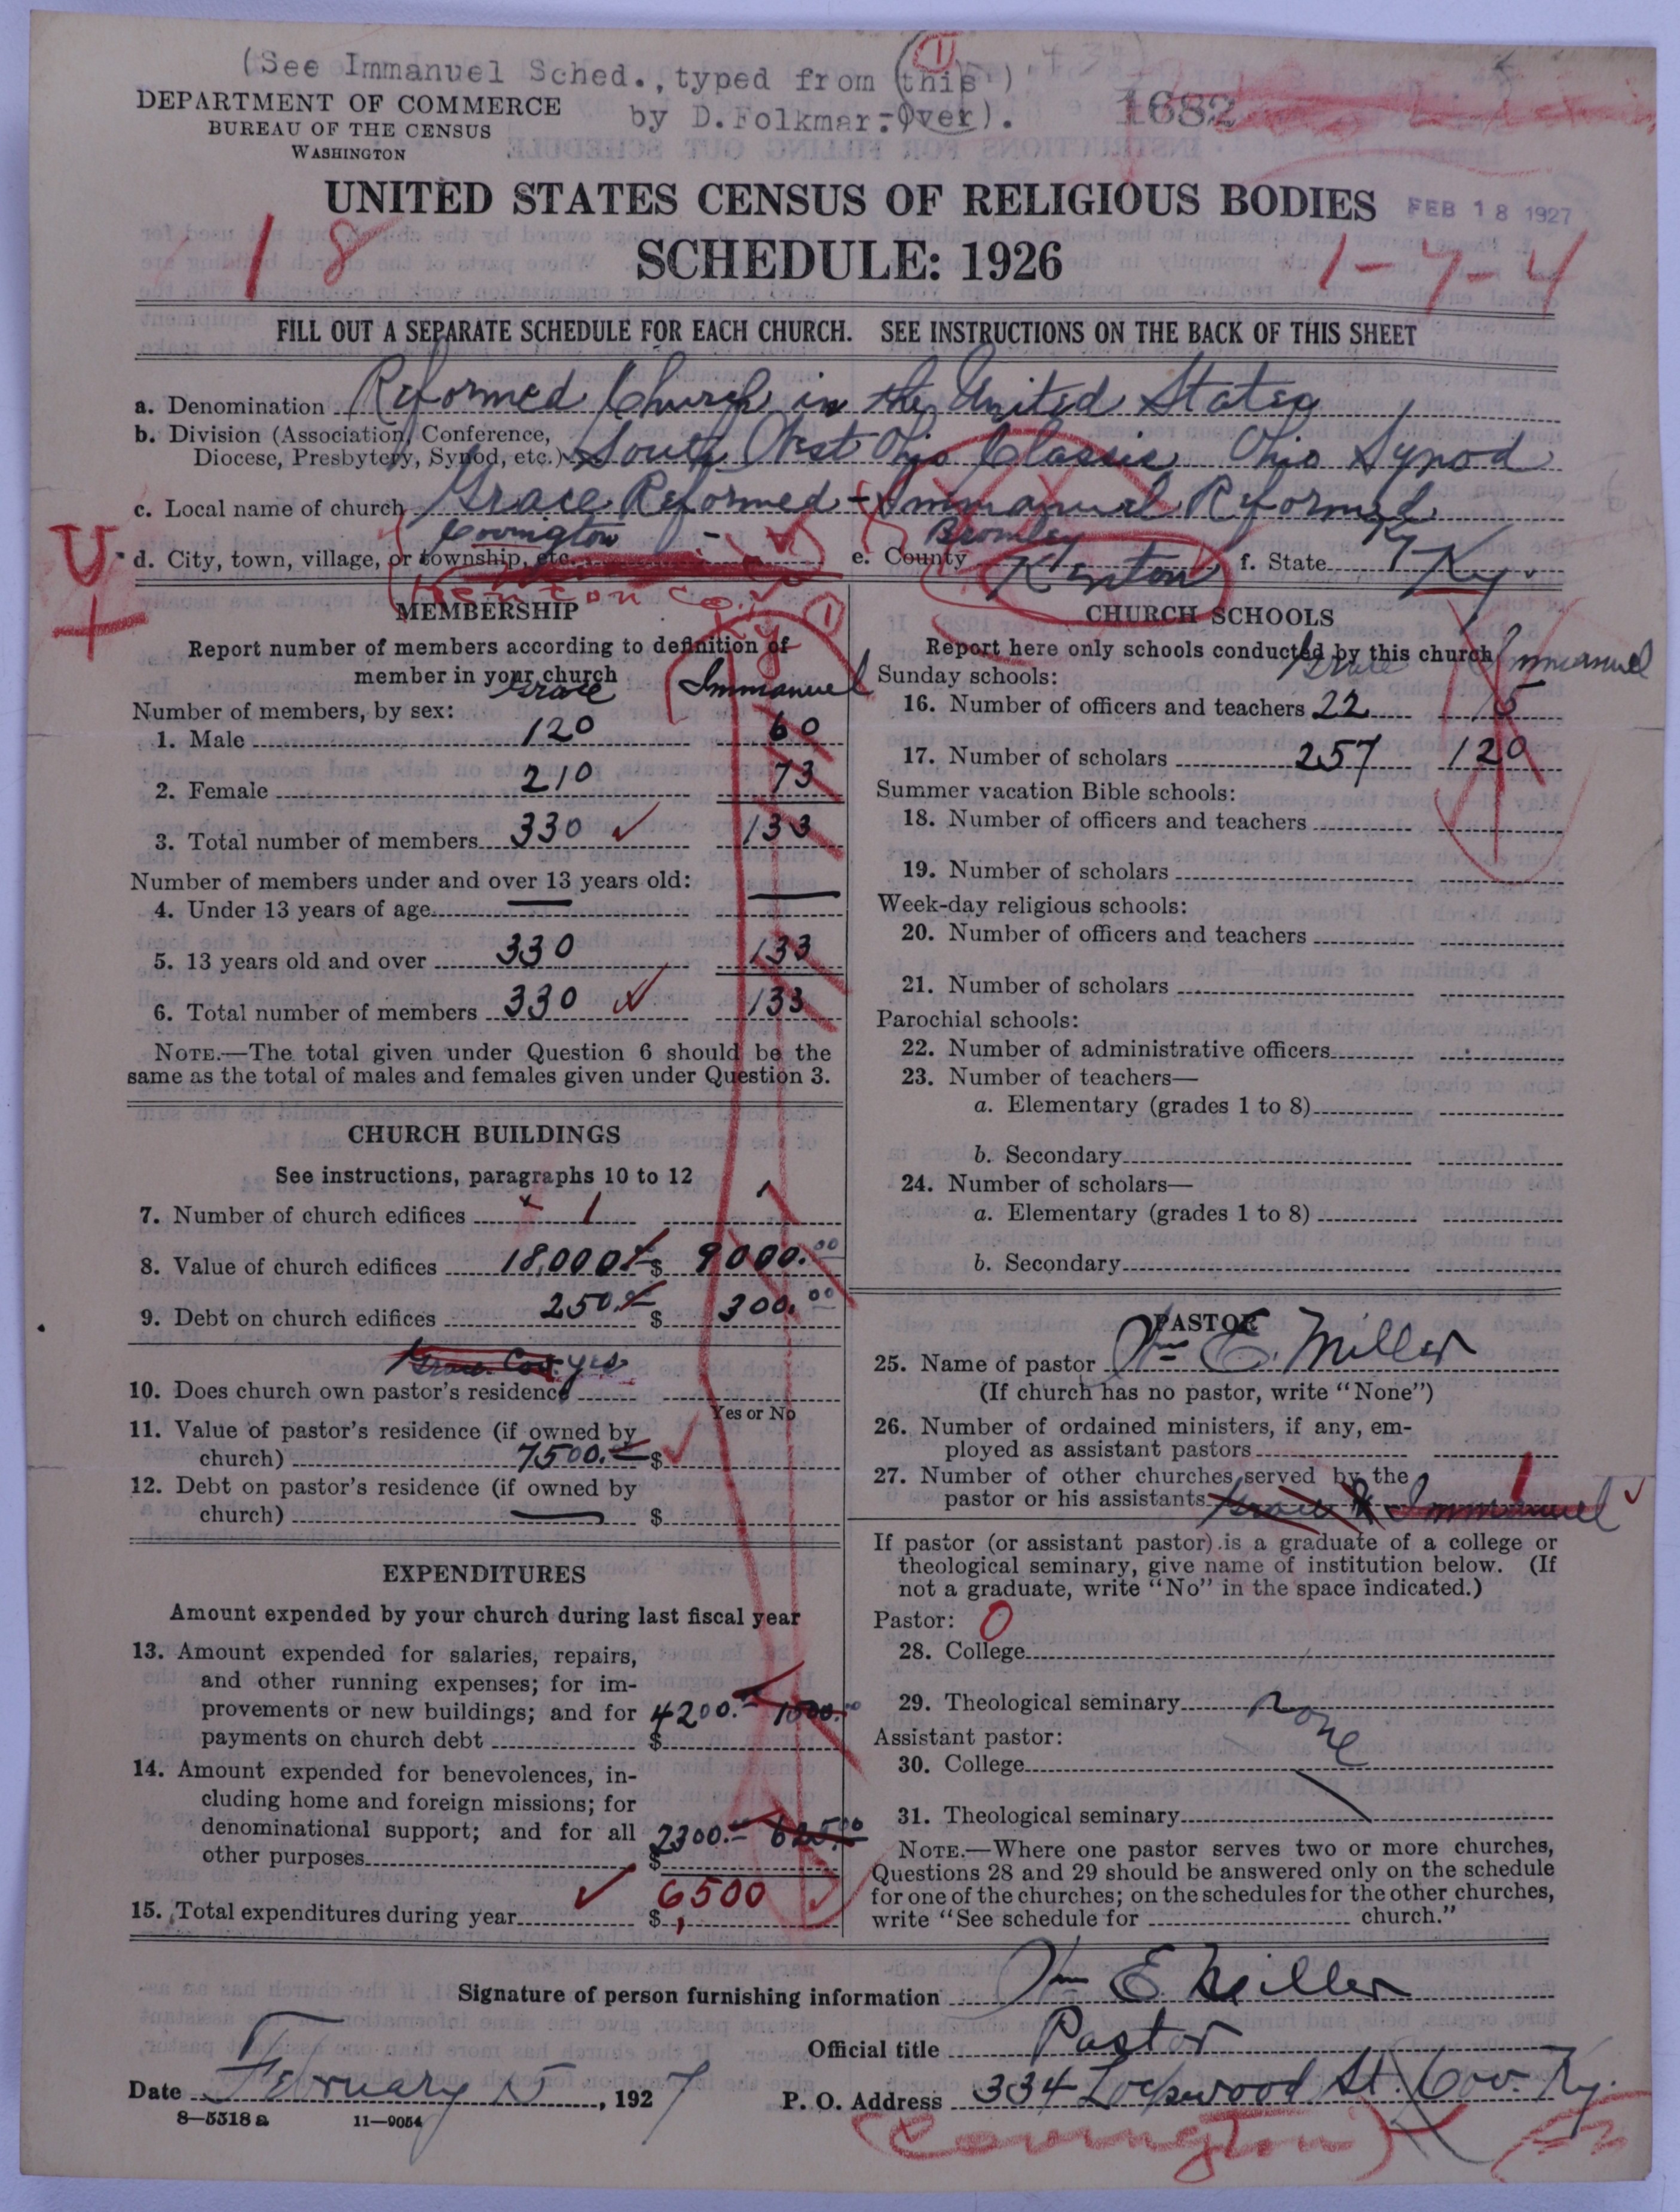 (See Immanuel Sched., typed from (this)
by D.Folkmar.-Over).
1
1682
DEPARTMENT OF COMMERCE
BUREAU OF THE CENSUS
WASHINGTON
UNITED STATES CENSUS OF RELIGIOUS BODIES
FEB 18 1927
SCHEDULE: 1926
18
1-7-4
FILL OUT A SEPARATE SCHEDULE FOR EACH CHURCH. SEE INSTRUCTIONS ON THE BACK OF THIS SHEET
a. Denomination Reformed Church in the United States
b. Division (Association, Conference,
Diocese, Presbytery, Synod, etc.) South West Ohio Classis Ohio Synod
c. Local name of church Grace Reformed - Immanuel Reformed
Covington Bromley Ky
d. City, town, village, or township, etc. e. County Kenton f. State Ky.
Kenton Co.
U
MEMBERSHIP
Report number of members according to definition of
member in your church
Grace Immanuel
Number of members, by sex:
1. Male 120 60
2. Female 210 73
3. Total number of members 330 133
Number of members under and over 13 years old:
4. Under 13 years of age — —
5. 13 years old and over 330 133
6. Total number of members 330 133
NOTE.—The total given under Question 6 should be the
same as the total of males and females given under Question 3.
CHURCH BUILDINGS
See instructions, paragraphs 10 to 12
7. Number of church edifices 1 1
8. Value of church edifices 18,000 $ 9000.00
9. Debt on church edifices 250. $ 300.00
Grace Cov. yes.
10. Does church own pastor's residence
Yes or No
11. Value of pastor's residence (if owned by
church) 7500. $
12. Debt on pastor's residence (if owned by
church) — $
EXPENDITURES
Amount expended by your church during last fiscal year
13. Amount expended for salaries, repairs,
and other running expenses; for im-
provements or new buildings; and for 4200.- 1500.00
payments on church debt $
14. Amount expended for benevolences, in-
cluding home and foreign missions; for
denominational support; and for all 2300.- 625.00
other purposes $
15. Total expenditures during year $ 6500
CHURCH SCHOOLS
Report here only schools conducted by this church
Grace Immanuel
Sunday schools:
16. Number of officers and teachers 22 15
17. Number of scholars 257 120
Summer vacation Bible schools:
18. Number of officers and teachers
19. Number of scholars
Week-day religious schools:
20. Number of officers and teachers
21. Number of scholars
Parochial schools:
22. Number of administrative officers
23. Number of teachers—
a. Elementary (grades 1 to 8)
b. Secondary
24. Number of scholars—
a. Elementary (grades 1 to 8)
b. Secondary
PASTOR
25. Name of pastor Wm E. Miller
(If church has no pastor, write "None")
26. Number of ordained ministers, if any, em-
ployed as assistant pastors
27. Number of other churches served by the 1
pastor or his assistants Grace & Immanuel
If pastor (or assistant pastor) is a graduate of a college or
theological seminary, give name of institution below. (If
not a graduate, write "No" in the space indicated.)
Pastor: 0
28. College
29. Theological seminary none
Assistant pastor:
30. College
31. Theological seminary
NOTE.—Where one pastor serves two or more churches,
Questions 28 and 29 should be answered only on the schedule
for one of the churches; on the schedules for the other churches,
write "See schedule for church."
Signature of person furnishing information Wm E. Miller
Official title Pastor
Date February 15, 1927 P. O. Address 334 Lockwood St. Cov. Ky.
8—5518 a 11—9054
(Covington)